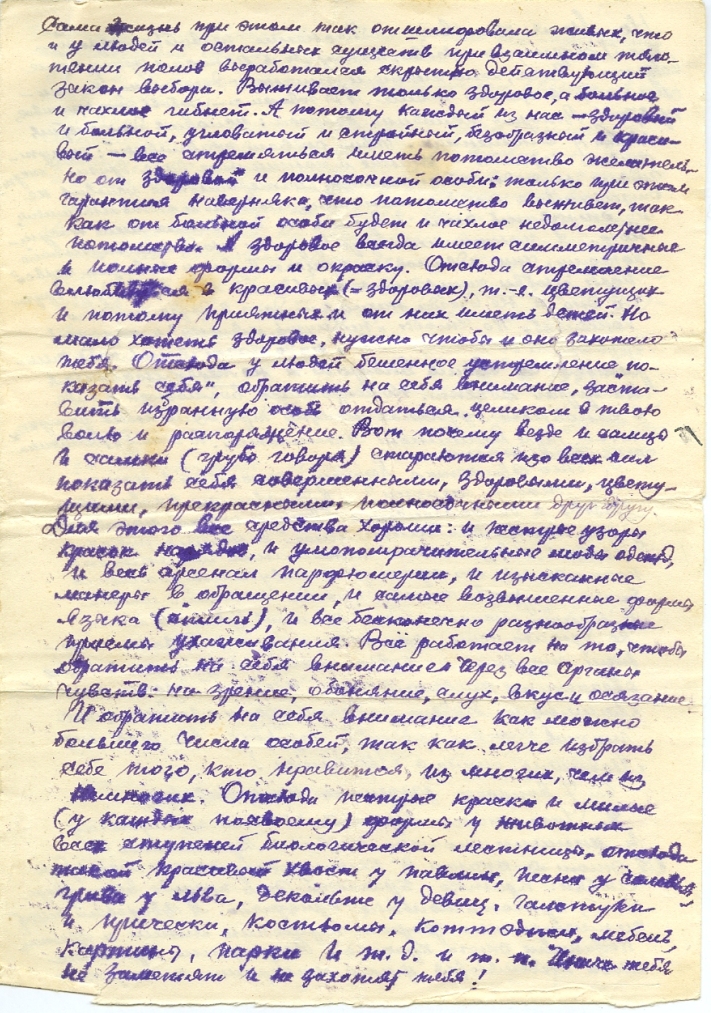 Сама жизнь при этом так отшлифовала живых, что
и у людей и остальных существ при взаимном тяго-
тении полов выработался скрытно действующий
закон выбора. Выживает только здоровое, а больное
и чахлое гибнет. А потому каждый из нас – здоровый
и больной, угловатый и стройный, безобразный и краси-
вый – все стремяться иметь потомство желатель-
но от здоровой и полносочной особи: только при этом
гарантия наверняка, что потомство выживет, так
как от больной особи будет и чахлое недолговечное
потомство. А здоровое всегда имеет симметричные
и полные формы и окраску. Отсюда стремление
влюбиться в красивых (= здоровых), т.-е. цветущих
и потому приятных и от них иметь детей. Но
мало хотеть здоровое, нужно чтобы и оно захотело
тебя. Отсюда у людей бешенное устремление "по-
казать себя", обратить на себя внимание, заста-
вить избранную особь отдаться целиком в твою
волю и распоряжение. Вот почему везде и самцы
и самки (грубо говоря) стараются изо всех сил
показать себя совершенными, здоровыми, цвету-
щими, прекрасными, полносочными друг другу.
Для этого все средства хороши: и пестрые узоры
красок, и умопомрачительные моды одежд,
и весь арсенал парфюмерии, и изысканные
манеры в обращении, и самые возвышенные формы
языка (стихи), и все бесконечно разнообразные
приемы ухаживания. Всё работает на то, чтобы
обратить на себя внимание через все органы
чувств: на зрение, обоняние, слух, вкус и осязание.
И обратить на себя внимание как можно
большего числа особей, так как легче избрать
себе того, кто нравится, из многих, чем из
немногих. Отсюда пестрые краски и милые
(у каждых по своему) формы у животных
всех ступеней биологической лестницы, отсюда
такой красивый хвост у павлина, песня у соловья,
грива у льва, декольте у девиц, галстуки
и прически, костюмы, коттеджи, мебель,
картины, парки и т.д. и т.п. Иначе тебя
не заметят и не захотят тебя!